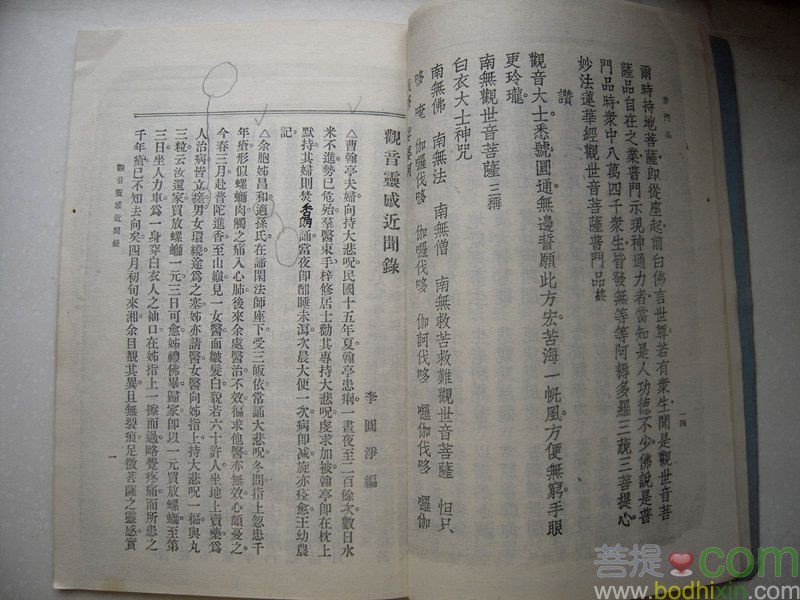 普門品
一四
爾時持地菩薩即從座起前白佛言世尊若有衆生聞是觀世音菩
薩品自在之業普門示現神通力者當知是人功德不少佛說是普
門品時衆中八萬四千衆生皆發無等等阿耨多羅三藐三菩提心
妙法蓮華經觀世音菩薩普門品終
讚
觀音大士悉號圓通無邊誓願此方宏苦海一帆風方便無窮手眼
更玲瓏。
南無觀世音菩薩三稱
白衣大士神咒
南無佛 南無法 南無僧 南無救苦救難觀世音菩薩 怛只
哆 唵 伽囉伐哆 伽囉伐哆 伽訶伐哆 囉伽伐哆 囉伽
觀音靈感近聞錄
李圓淨編
△曹翰亭夫婦向持大悲呪民國十五年夏翰亭患痢一晝夜至二百餘次數日水
米不進勢已危殆羣醫束手梓修居士勸其專持大悲呪虔求加被翰亭即在枕上
默持其婦則焚香朗誦當夜即酣睡未瀉次晨大便一次病即減旋亦痊愈王幼農
記
△余胞姊昌和適孫氏在諦閑法師座下受三皈依常誦大悲呪冬間指上忽患千
年瘡形似螺螄肉觸之痛入心肺後來余處醫治不效徧求他醫亦無效心頗憂之
今春三月赴普陀進香至山巔見一女醫面皺髮白貌若六十許人坐地上賣藥爲
人治病皆立痊男女環繞途爲之塞姊亦請醫女醫向姊指上持大悲呪一徧與丸
三粒云汝還家買放螺螄一元三日可愈姊禮佛畢歸家即以一元買放螺螄至第
三日坐人力車爲一身穿白衣人之袖口在姊指上一擦而過略覺疼痛而所患之
千年瘡已不知去向矣四月初旬來湘余目覩其異且無裂痕足徵菩薩之靈感實
觀音靈感近聞錄
一
菩提com
www.bodhixin.com